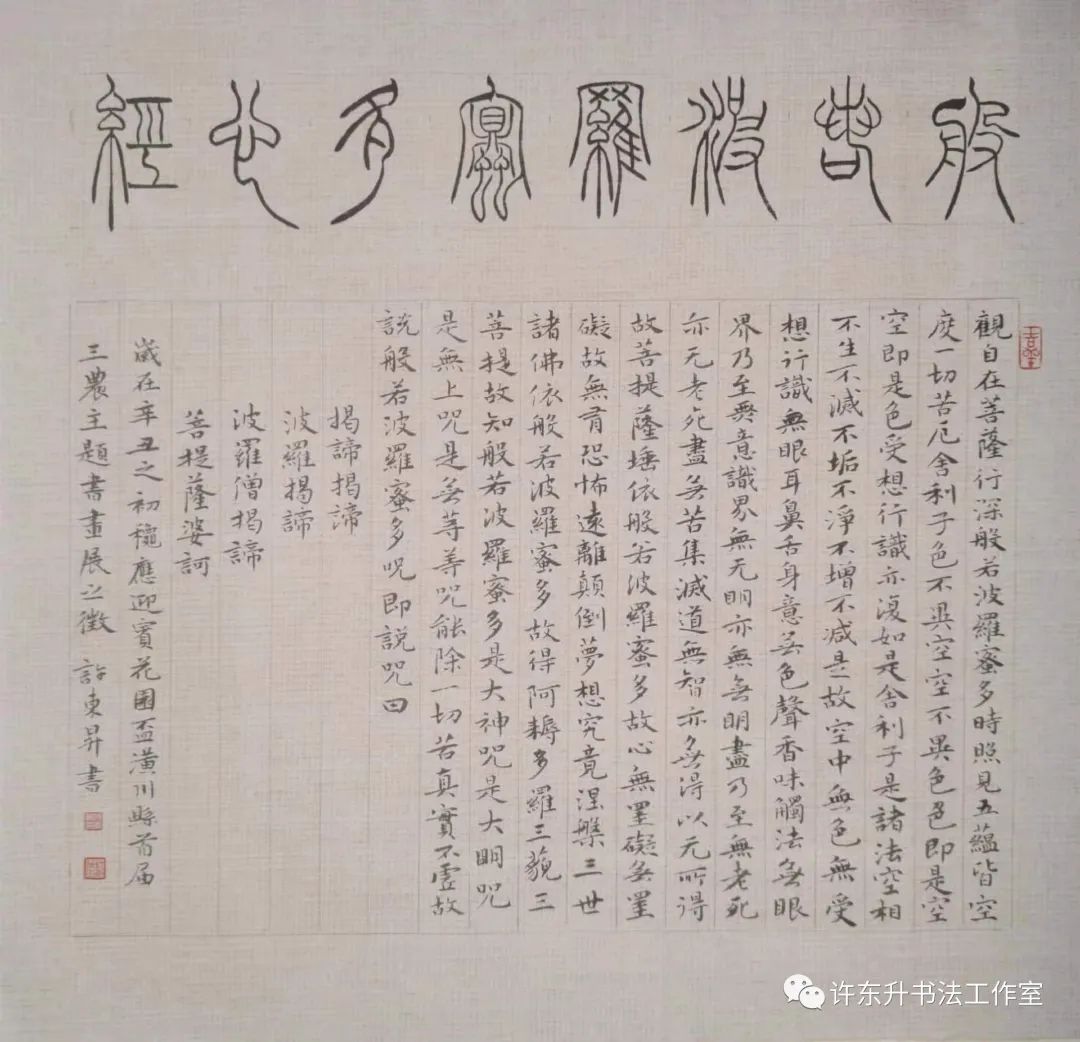 般若波羅蜜多心經
觀自在菩薩行深般若波羅蜜多時照見五蘊皆空
度一切苦厄舍利子色不異空空不異色色即是空
空即是色受想行識亦復如是舍利子是諸法空相
不生不滅不垢不淨不增不減是故空中無色無受
想行識無眼耳鼻舌身意無色聲香味觸法無眼
界乃至無意識界無无明亦無無明盡乃至無老死
亦无老死盡無苦集滅道無智亦無得以无所得
故菩提薩埵依般若波羅蜜多故心無罣礙無罣
礙故無有恐怖遠離顛倒夢想究竟涅槃三世
諸佛依般若波羅蜜多故得阿耨多羅三藐三
菩提故知般若波羅蜜多是大神咒是大明咒
是無上咒是無等等咒能除一切苦真實不虛故
説般若波羅蜜多咒即説咒曰
揭諦揭諦
波羅揭諦
波羅僧揭諦
菩提薩婆訶
歲在辛丑之初穐應迎賓花園盃潢川縣首届
三農主題書畫展之徵 許東昇書
许东升书法工作室